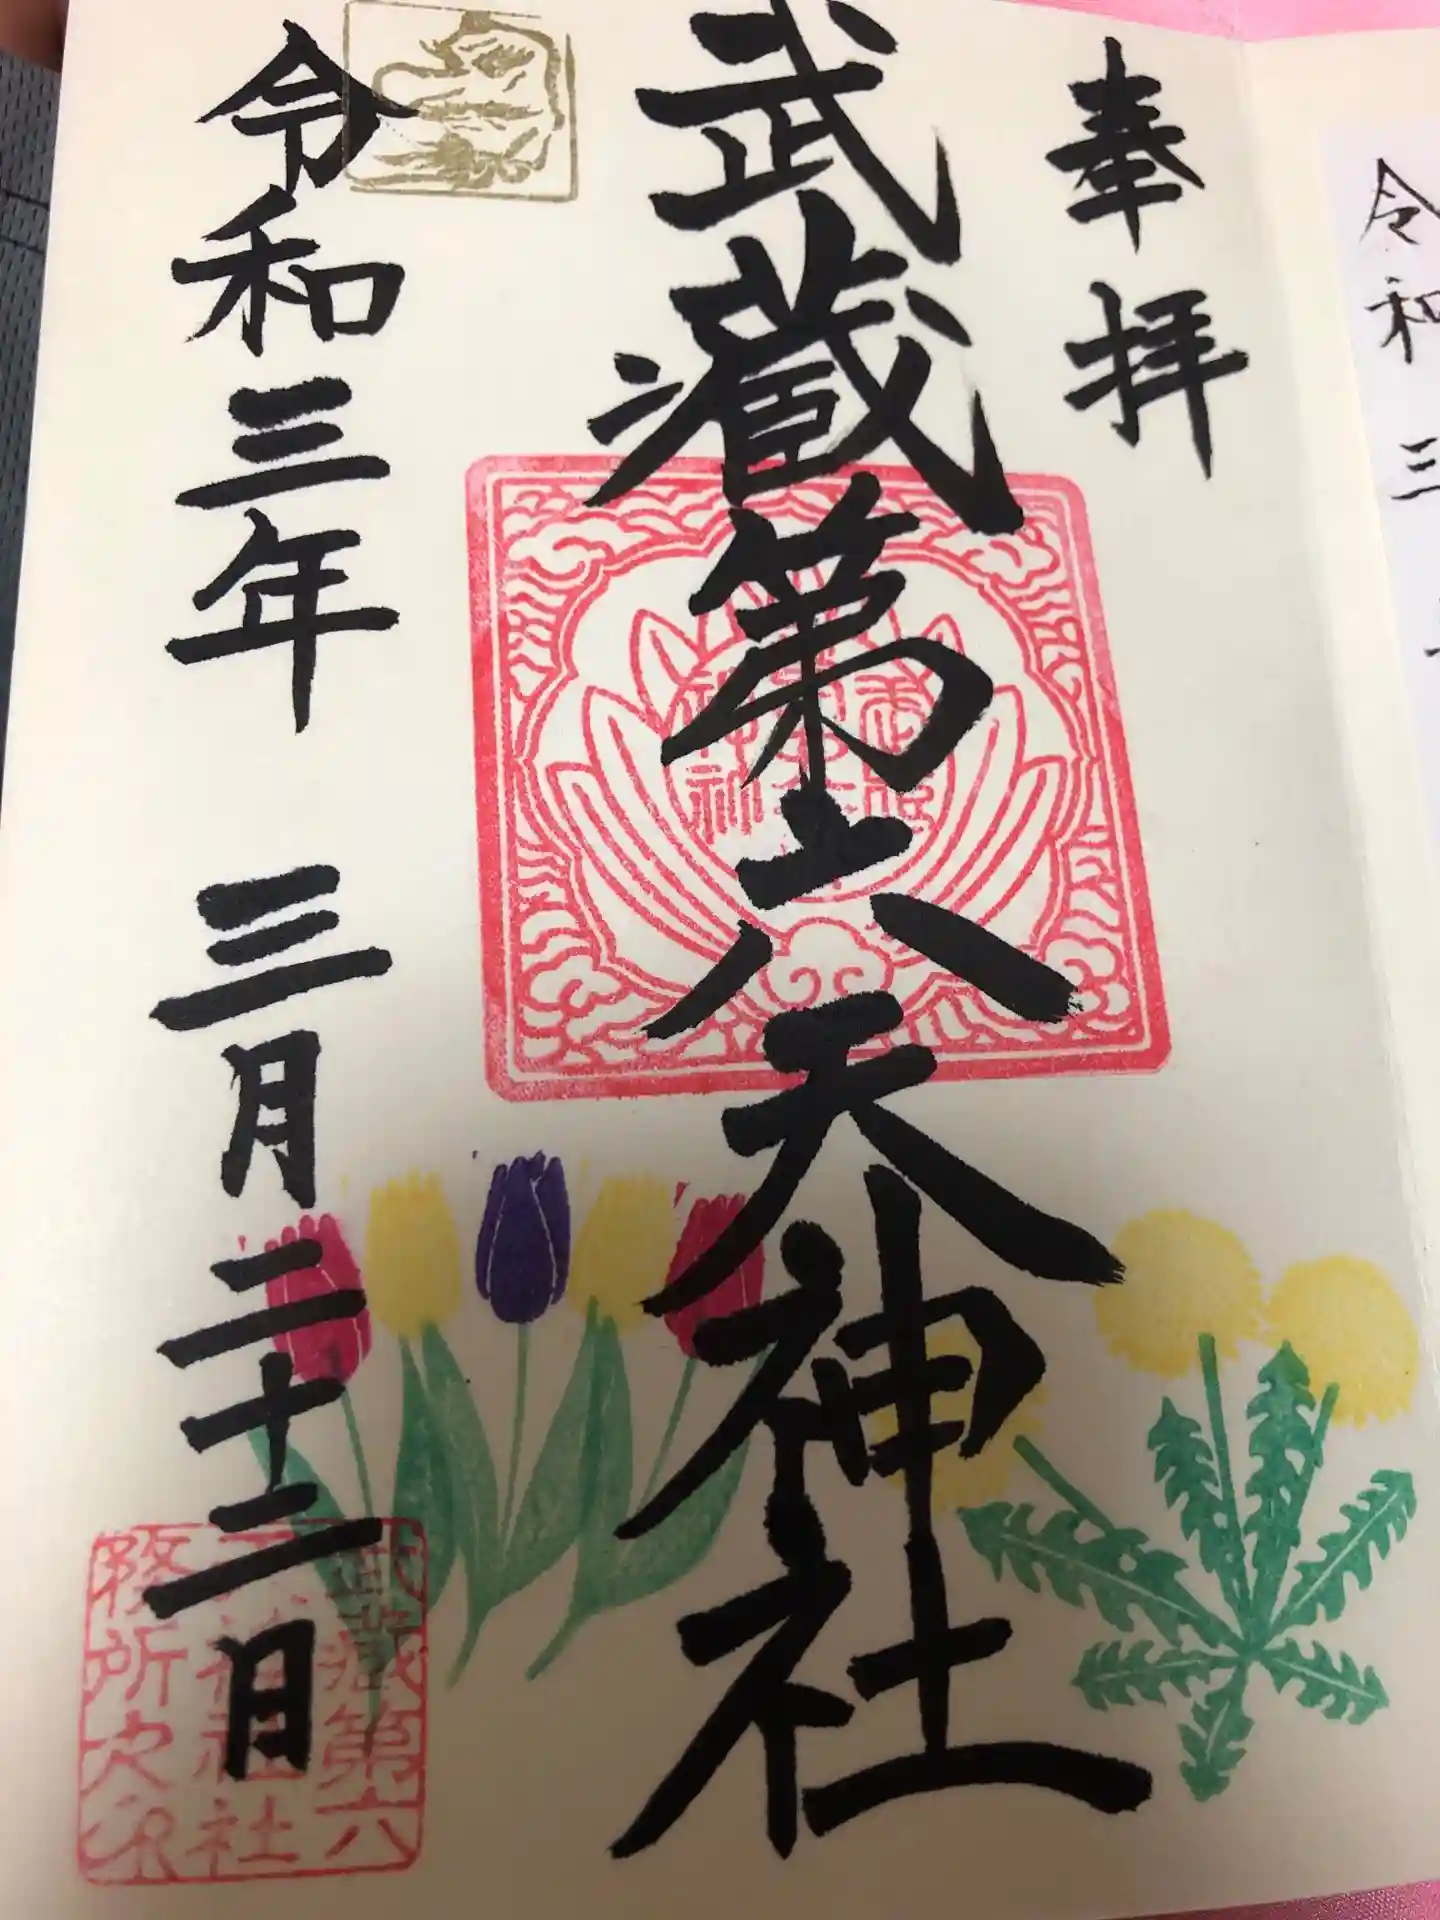 奉拝
武蔵第六天神社
令和三年 三月二十二日
武蔵第六
天神社
務所之印
令和三